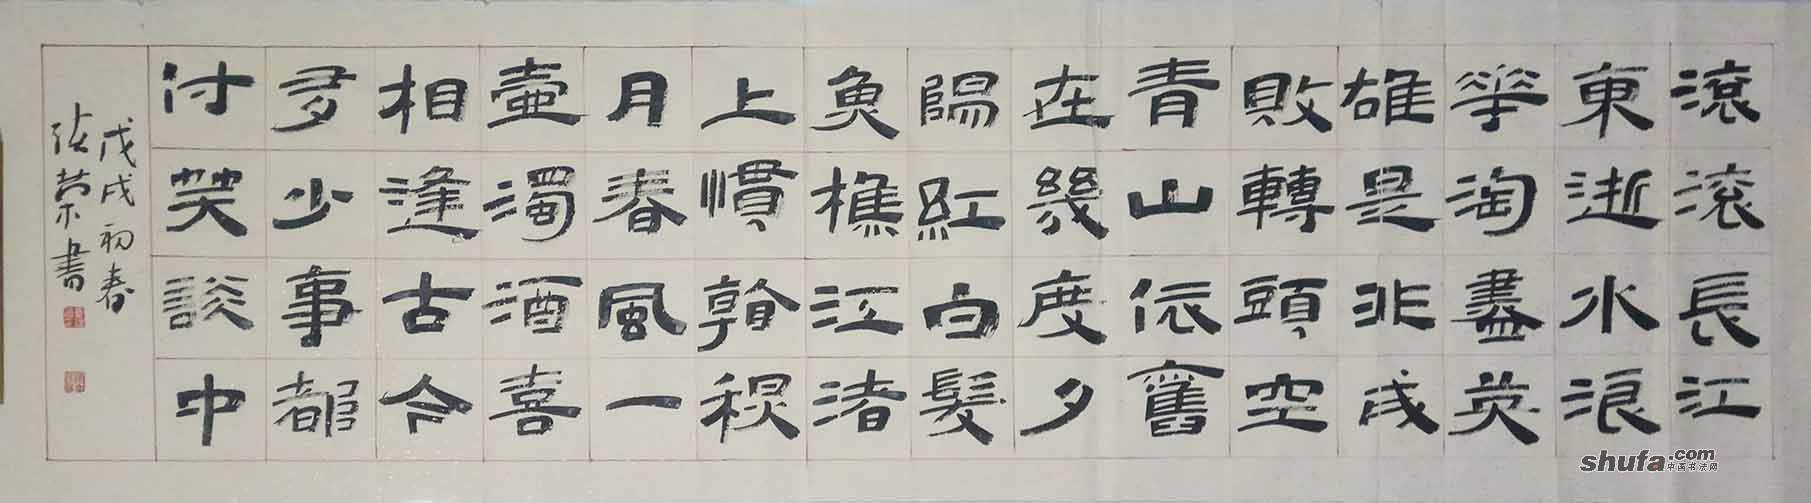 滚滚長江
東逝水浪
華淘盡英
雄是非成
敗轉頭空
青山依舊
在幾度夕
陽紅白髮
魚樵江渚
上慣看秋
月春風一
壺濁酒喜
相逢古今
多少事都
付笑談中
戊戌初春
张荣書
shufa.com
中国书法网